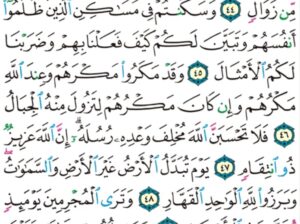 مِّن زَوَالٍ ﴿٤٤﴾ وَسَكَنتُمْ فِي مَسَاكِنِ الَّذِينَ ظَلَمُوا
أَنفُسَهُمْ وَتَبَيَّنَ لَكُمْ كَيْفَ فَعَلْنَا بِهِمْ وَضَرَبْنَا
لَكُمُ الْأَمْثَالَ ﴿٤٥﴾ وَقَدْ مَكَرُوا مَكْرَهُمْ وَعِندَ اللَّهِ
مَكْرُهُمْ وَإِن كَانَ مَكْرُهُمْ لِتَزُولَ مِنْهُ الْجِبَالُ
﴿٤٦﴾ فَلَا تَحْسَبَنَّ اللَّهَ مُخْلِفَ وَعْدِهِ رُسُلَهُ إِنَّ اللَّهَ عَزِيزٌ
ذُو انتِقَامٍ ﴿٤٧﴾ يَوْمَ تُبَدَّلُ الْأَرْضُ غَيْرَ الْأَرْضِ وَالسَّمَاوَاتُ
وَبَرَزُوا لِلَّهِ الْوَاحِدِ الْقَهَّارِ ﴿٤٨﴾ وَتَرَى الْمُجْرِمِينَ يَوْمَئِذٍ